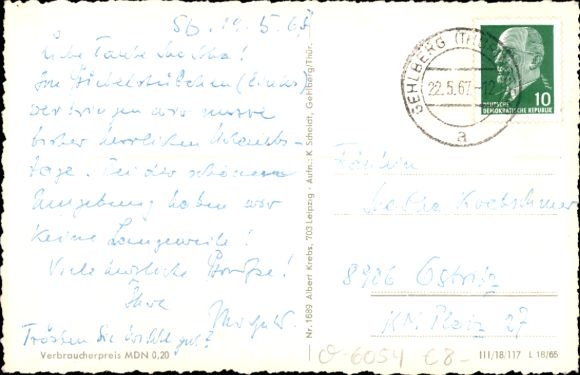 Sb. 19. 5. 67
Liebe Tante Martha!
Im Giebelstübchen (links)
verbringen wir unsre
bisher herrlichen Urlaubs-
tage. Bei der schönen
Umgebung haben wir
keine Langeweile!
Viele herzliche Grüße!
Ihre
Trösten Sie
gut?
Verbraucherpreis MDN 0,20
Nr. 1689 Albert Krebs, 703 Leipzig - Aufn.: K. Scheidt, Gehlberg/Thür.
GEHLBERG (THÜR)
22.5.67 -12
a
10
DEUTSCHE
DEMOKRATISCHE REPUBLIK
Fräulein
Martha Kretschmer
8926 Ostritz
Platz 27
o-6054 C8-
III/18/117 L 18/65